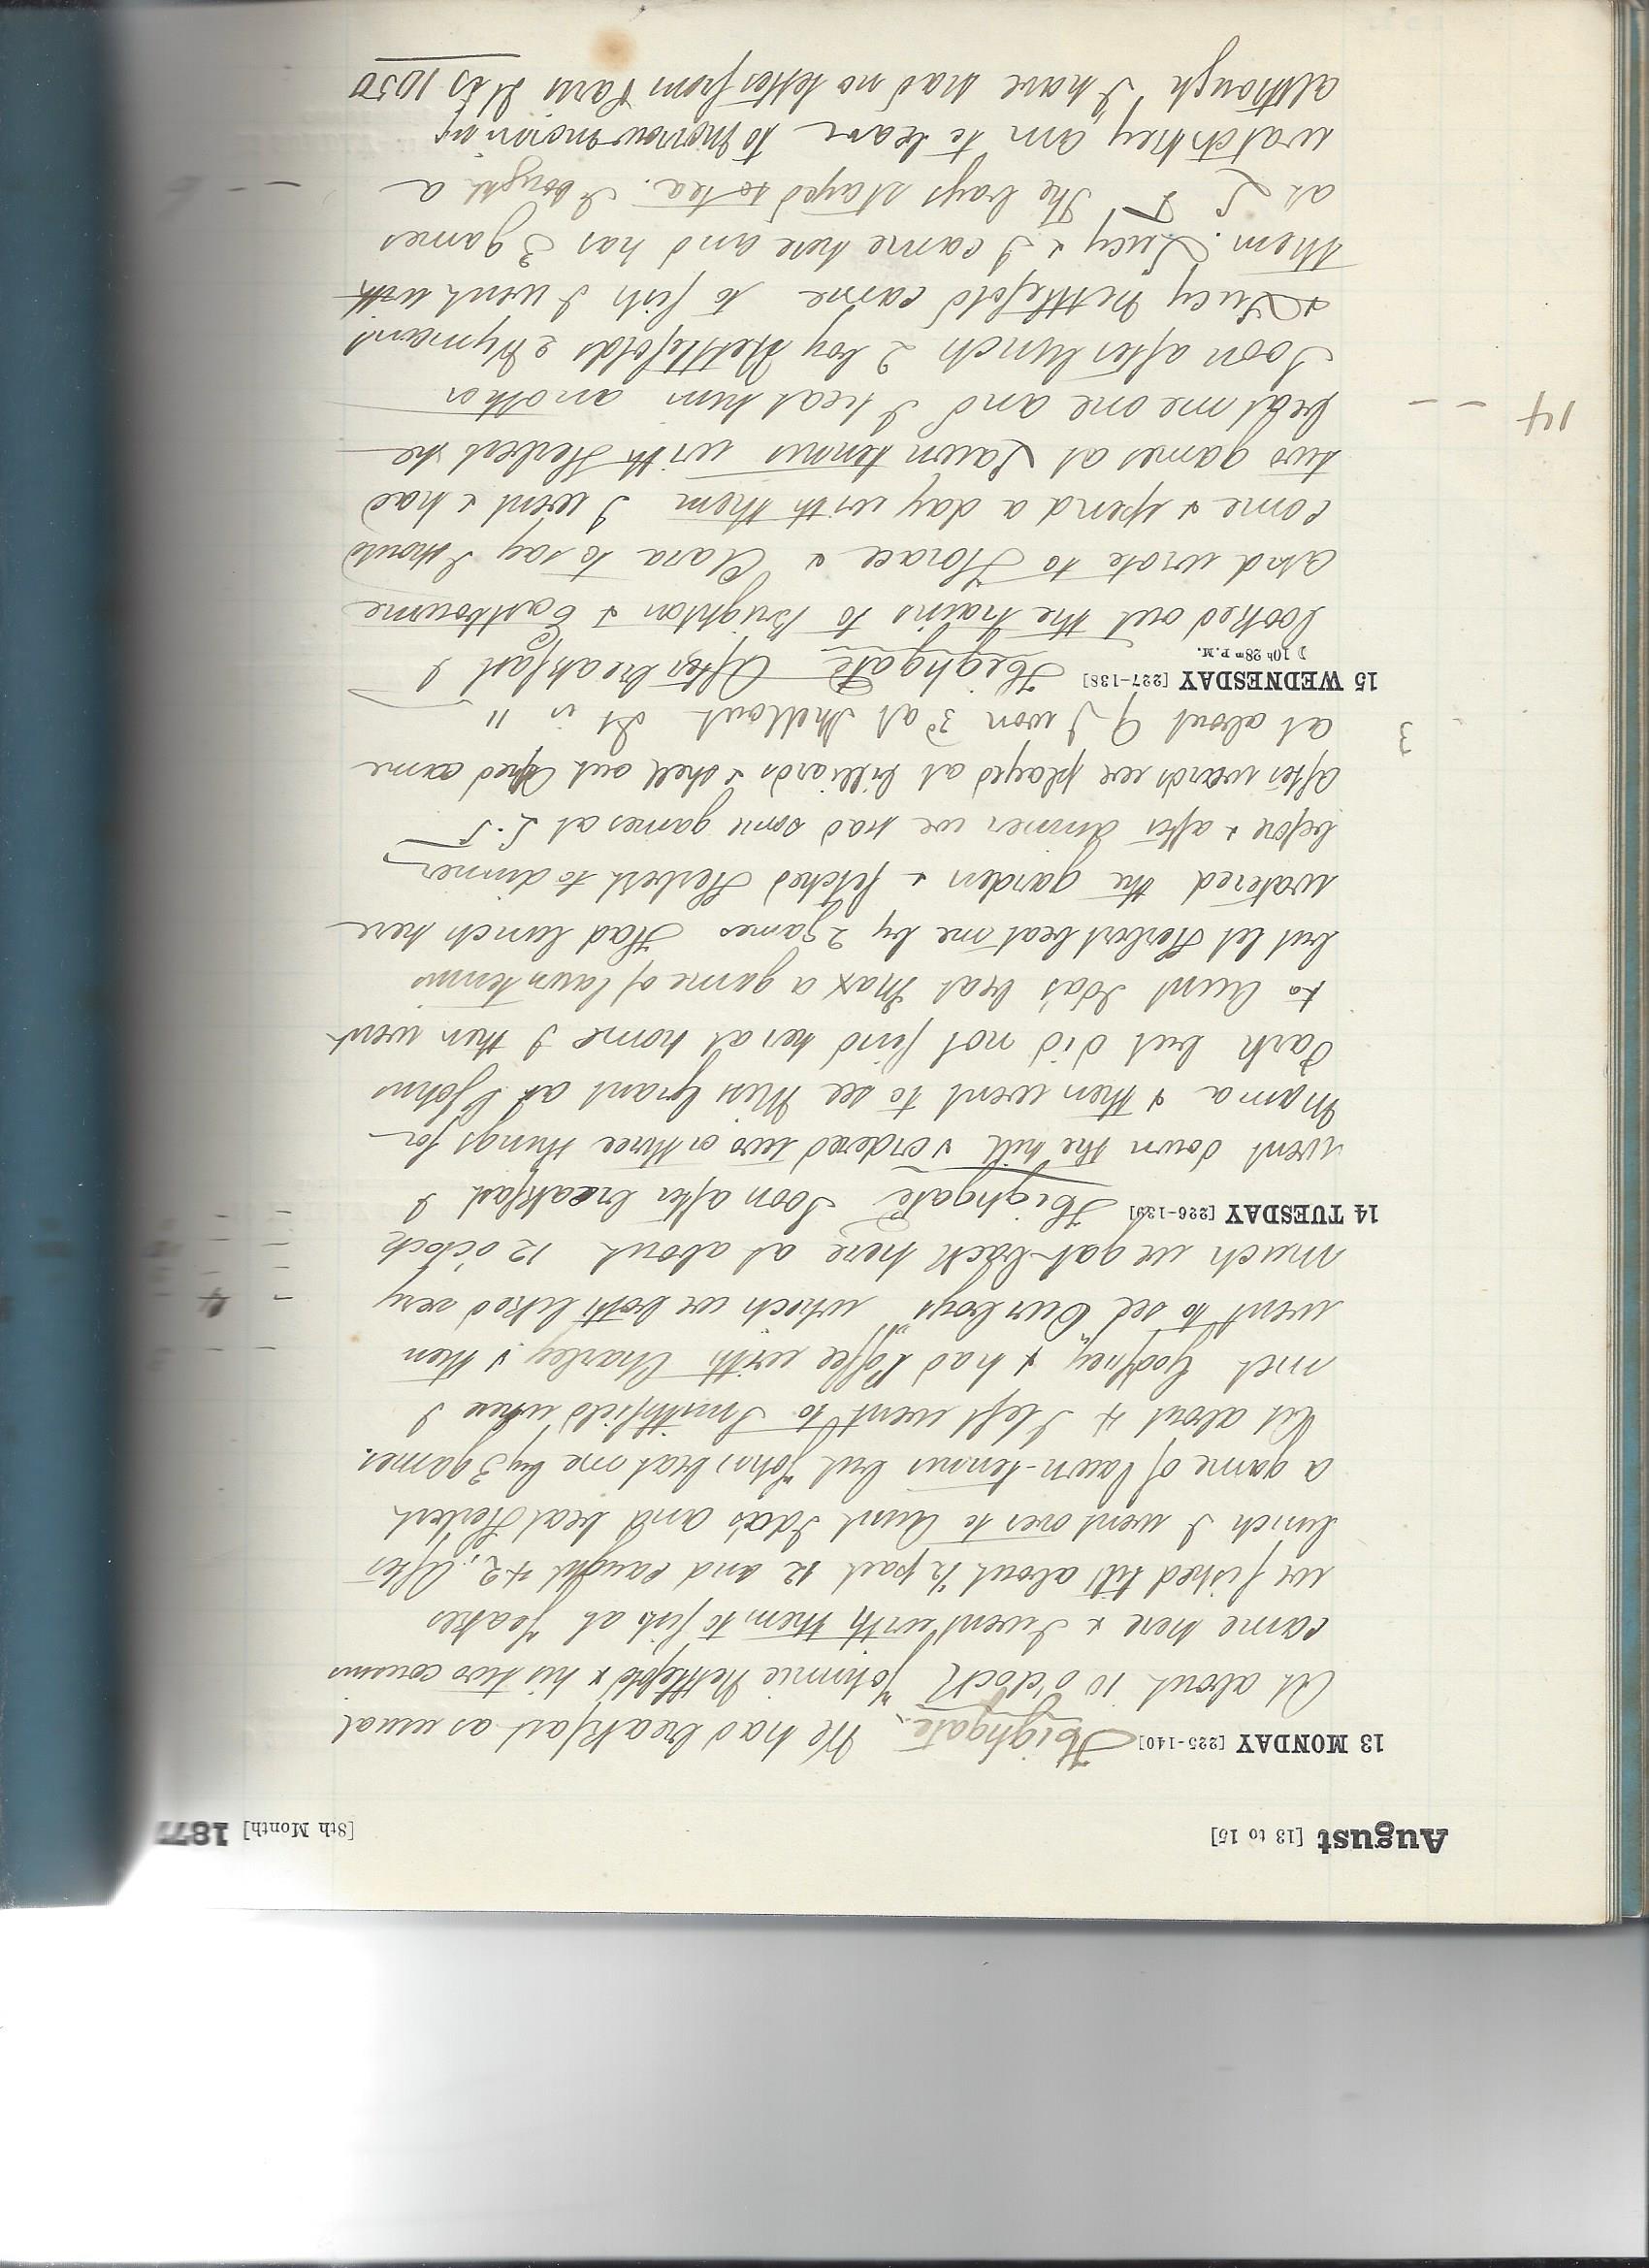 August [13 to 15] [8th Month] 187
13 MONDAY [225-140] Highgate. We had breakfast as usual
At about 10 o'clock Johnnie Nettlefold & his two cousins
came here & I went with them to fish at
we fished till about ½ past 12 and caught 42. After
lunch I went over to Aunt Ida's and beat Herbert
a game of lawn-tennis but John beat me by 3 games.
At about 4 I left went to Smithfield where I
met Godfrey & had Coffee with Charley & then
went to see "Our boys" which we both liked very
- 4 -
much we got back here at about 12 o'clock
14 TUESDAY [226-139] Highgate Soon after breakfast I
went down the hill & ordered two or three things for
Mama & then went to see Miss Grant at St Johns
Park but did not find her at home I then went
to Aunt Ida's beat Max a game of lawn tennis
but let Herbert beat me by 2 games Had lunch here
watered the garden & fetched Herbert to dinner
before & after dinner we had some games at L.T
afterwards we played at billiards & shell out came
3
at about 9 I won 3d at shellout It is 11
15 WEDNESDAY [227-138] Highgate After breakfast I
☽ 10h 28m P.M.
looked out the trains to Brighton & Eastbourne
and wrote to Horace & Clara to say I should
come & spend a day with them I went & had
two games at Lawn tennis with Herbert he
14 - -
beat me one and I beat him another
Soon after lunch 2 boy Nettlefolds 2 Wymans
& Lucy Nettlefold came to fish I went with
them. Lucy & I came here and has 3 games
at L T The boys stayed to tea. I bought a
watchkey am to leave tomorrow morning
although I have had no letter from Paris It is 10 50